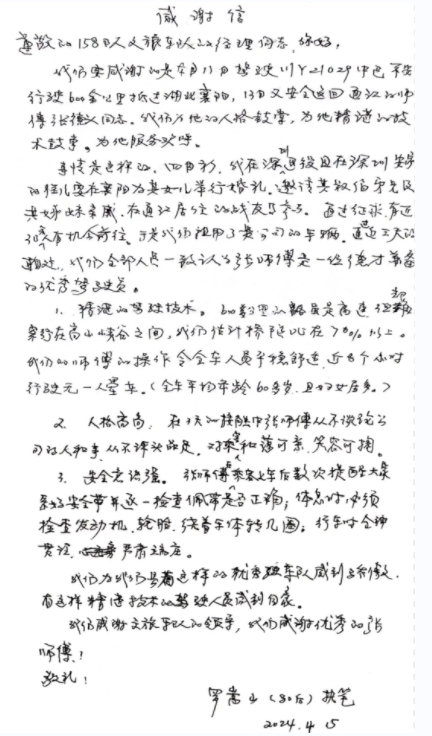 感谢信
尊敬的158人文旅车队的经理同志,你好,
我们要感谢的是4月11日驾驶川Y21029中巴车
行驶600余公里抵达湖北襄阳,13日又安全返回通江的师
傅张德义同志。我们为他的人格鼓掌,为他精湛的技
术鼓掌。为他服务欢呼。
事情是这样的,四月初,我在深圳
的侄儿要在襄阳为其女儿举行婚礼,邀请其
在通江居住的战友
有机会前往。于是我们租用了贵公司的车辆。通过三天的
我们全部人员一致认为张师傅是一位德才兼备
的优秀驾驶员。
1、精湛的驾驶技术。600公里的路虽是高速,但都
穿行在高山峡谷之间,我们估计桥隧比在70%以上。
我们的师傅的操作令全车人员平稳舒适,近8个小时
行驶无一人晕车。(全车平均年龄60多岁,且妇女居多。)
2、人格高尚,在3天的接触中张师傅从不谈论公
司的人和事,从不评头品足,对乘客和蔼可亲,笑容可掬。
3、安全意识强。张师傅在乘客上车后数次提醒大家
系好安全带并逐一检查佩带是否正确;休息时,必须
检查发动机、轮胎,绕着车体转几圈;行车时全神
贯注,严肃端庄。
我们为我们县有这样的优秀车队感到骄傲,
有这样精湛技术的驾驶人员感到自豪。
我们感谢文旅车队的领导,我们感谢优秀的张
师傅!
敬礼!
罗嵩山(80后)执笔
2024.4.15